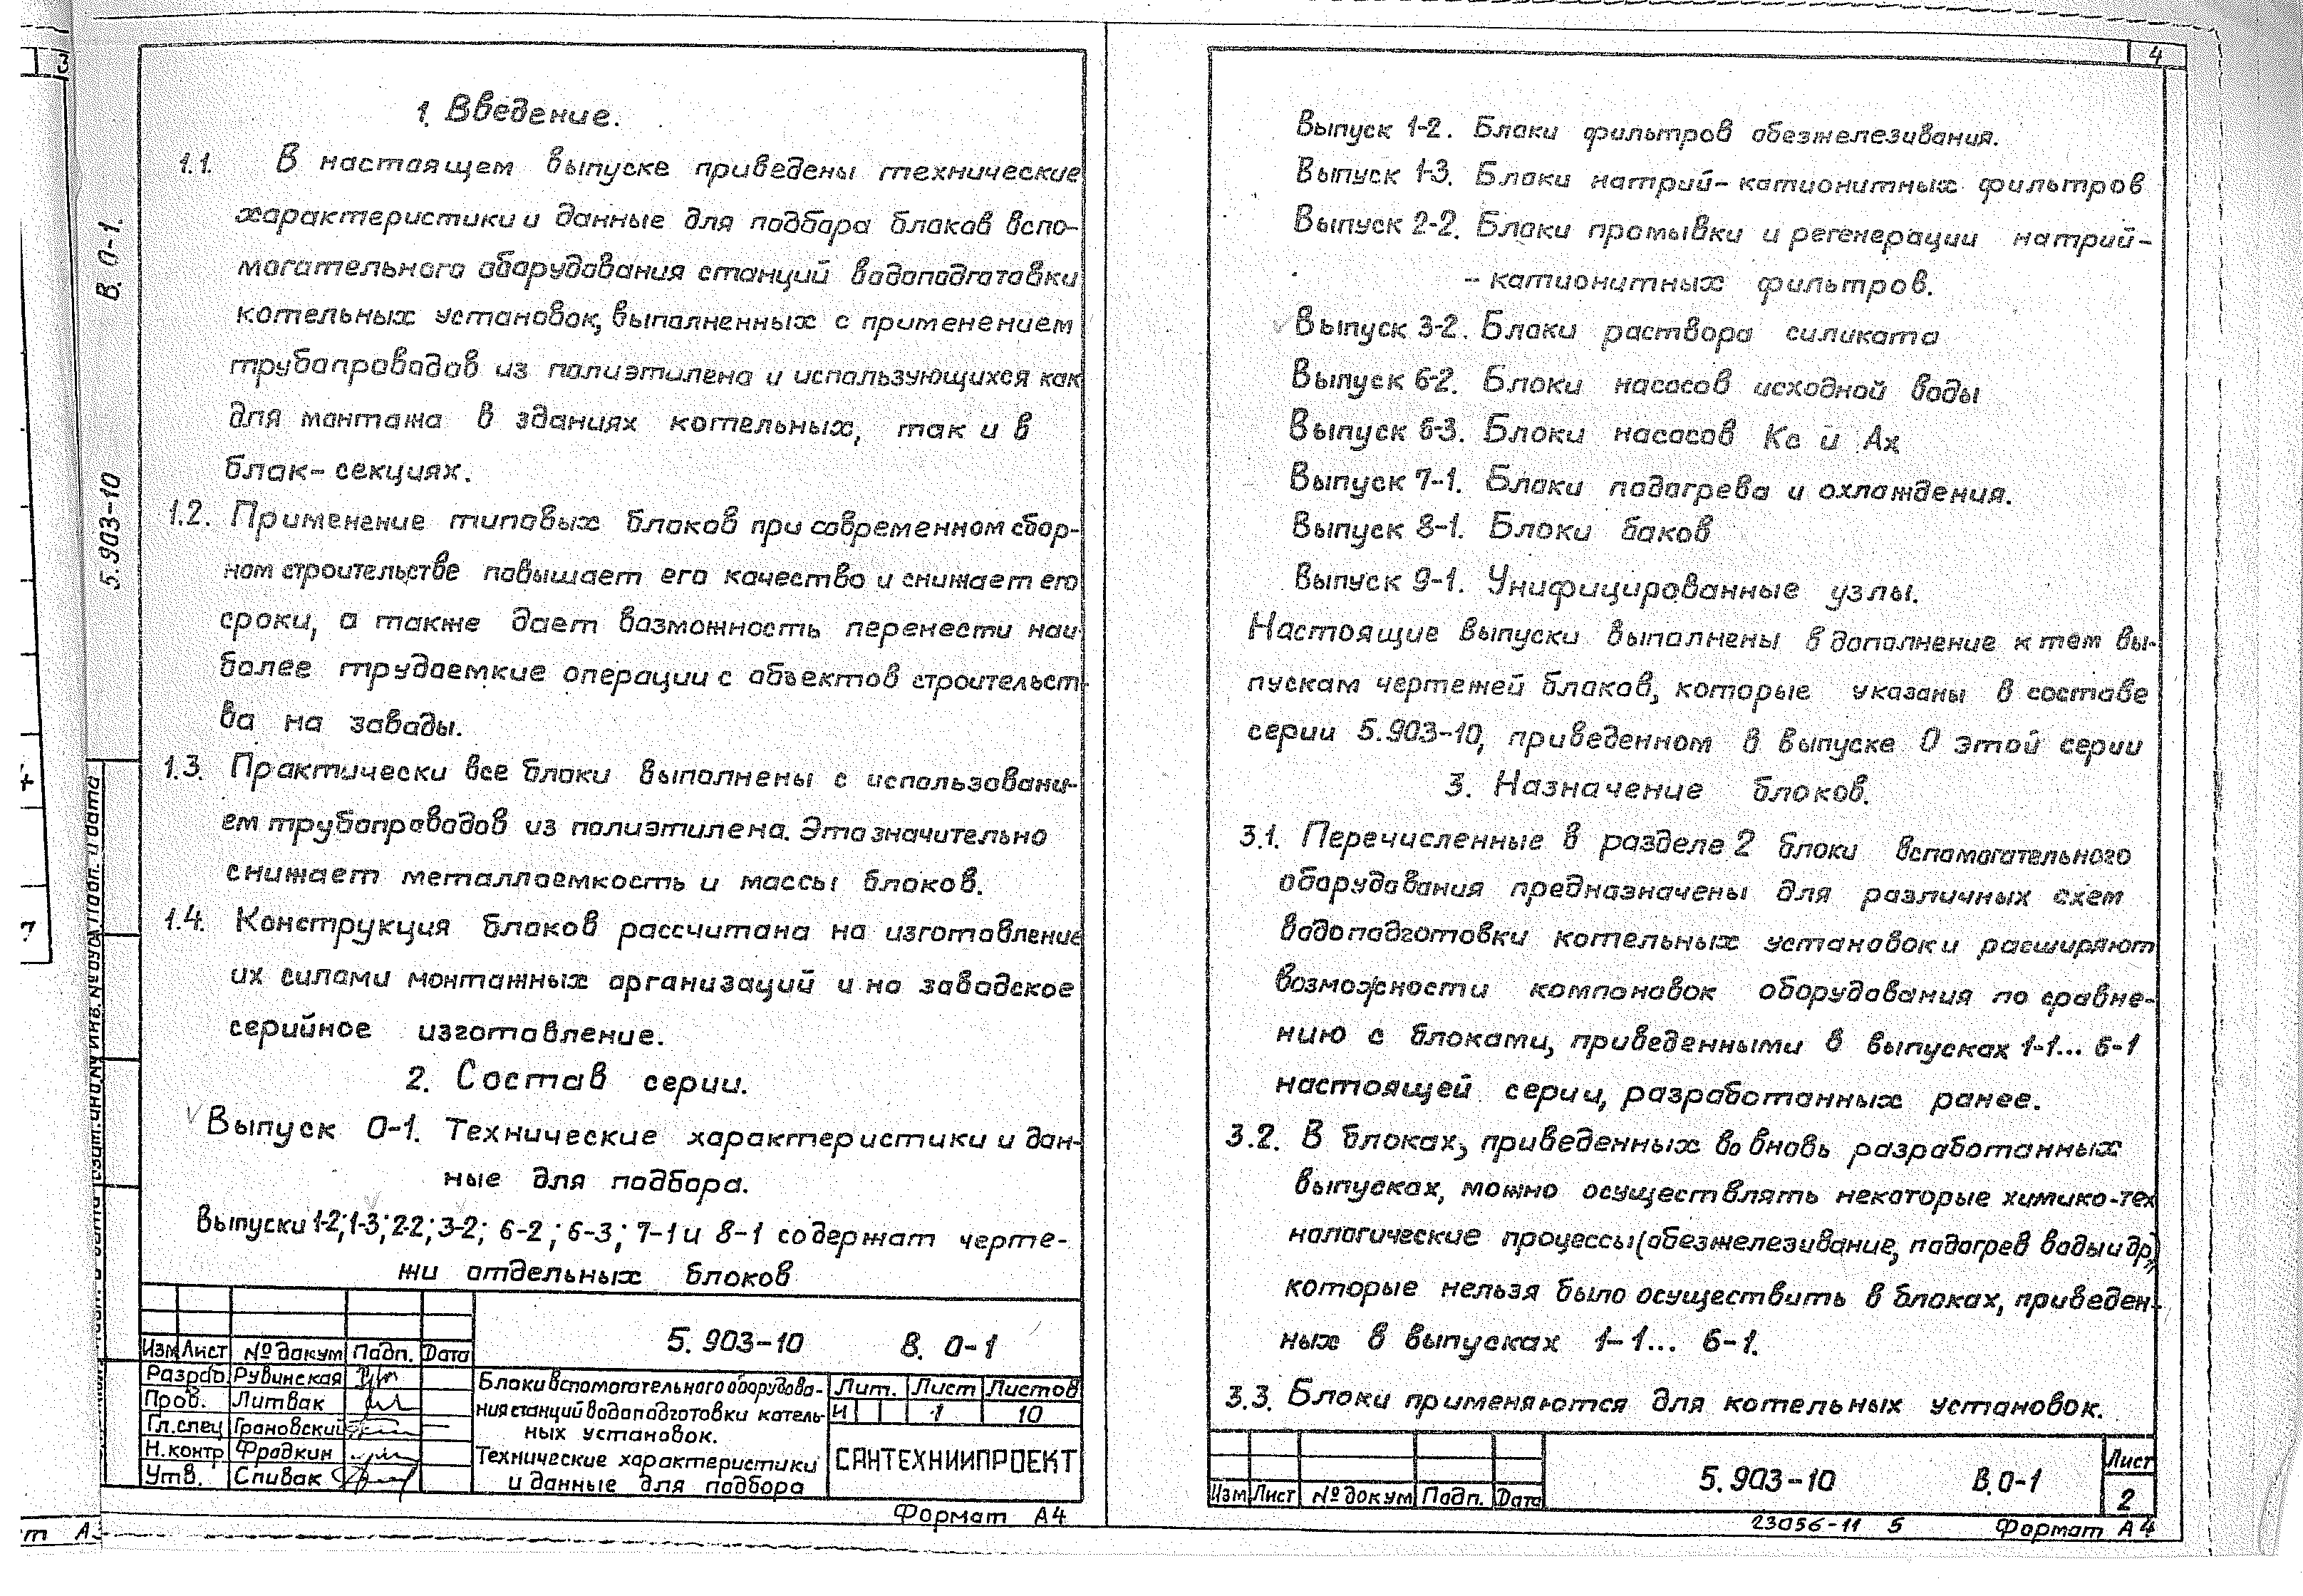 3
В. 0-1.
5.903-10
1. Введение.
1.1. В настоящем выпуске приведены технические
характеристики и данные для подбора блоков вспо-
могательного оборудования станций водоподготовки
котельных установок, выполненных с применением
трубопроводов из полиэтилена и использующихся как
для монтажа в зданиях котельных, так и в
блок-секциях.
1.2. Применение типовых блоков при современном сбор-
ном строительстве повышает его качество и снижает его
сроки, а также дает возможность перенести наи-
более трудоемкие операции с объектов строительст-
ва на заводы.
1.3. Практически все блоки выполнены с использовани-
ем трубопроводов из полиэтилена. Это значительно
снижает металлоемкость и массы блоков.
1.4. Конструкция блоков рассчитана на изготовление
их силами монтажных организаций и на заводское
серийное изготовление.
2. Состав серии.
Выпуск 0-1. Технические характеристики и дан-
ные для подбора.
Выпуски 1-2; 1-3; 2-2; 3-2; 6-2; 6-3; 7-1 и 8-1 содержат черте-
жи отдельных блоков
5.903-10 В. 0-1
Изм Лист № докум Подп. Дата
Разраб. Рувинская
Пров. Литвак
Гл.спец Грановский
Н.контр Фрадкин
Утв. Спивак
Блоки вспомогательного оборудова-
ния станций водоподготовки котель-
ных установок.
Технические характеристики
и данные для подбора
Лит. Лист Листов
И 1 10
САНТЕХНИИПРОЕКТ
Формат А4
4
Выпуск 1-2. Блоки фильтров обезжелезивания.
Выпуск 1-3. Блоки натрий-катионитных фильтров
Выпуск 2-2. Блоки промывки и регенерации натрий-
-катионитных фильтров.
Выпуск 3-2. Блоки раствора силиката
Выпуск 6-2. Блоки насосов исходной воды
Выпуск 6-3. Блоки насосов Кс и Ах
Выпуск 7-1. Блоки подогрева и охлаждения.
Выпуск 8-1. Блоки баков
Выпуск 9-1. Унифицированные узлы.
Настоящие выпуски выполнены в дополнение к тем вы-
пускам чертежей блоков, которые указаны в составе
серии 5.903-10, приведенном в выпуске 0 этой серии
3. Назначение блоков.
3.1. Перечисленные в разделе 2 блоки вспомогательного
оборудования предназначены для различных схем
водоподготовки котельных установок и расширяют
возможности компоновок оборудования по сравне-
нию с блоками, приведенными в выпусках 1-1... 6-1
настоящей серии, разработанных ранее.
3.2. В блоках, приведенных во вновь разработанных
выпусках, можно осуществлять некоторые химико-тех
нологические процессы (обезжелезивание, подогрев воды и др.),
которые нельзя было осуществить в блоках, приведен-
ных в выпусках 1-1... 6-1.
3.3. Блоки применяются для котельных установок.
Изм Лист № докум Подп. Дата
5.903-10 В.0-1
Лист
2
23056-11 5
Формат А4